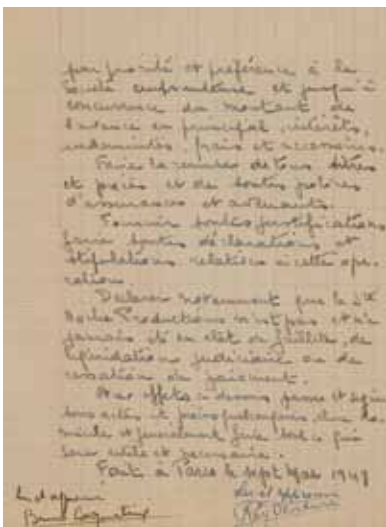 par priorité et préférence à la
Société emprunteuse et jusqu'à
concurrence du montant de
l'avance en principal, intérêts,
indemnités, frais et accessoires.
Faire la remise de tous titres
et pièces et de toutes polices
d'assurances et avenants.
Fournir toutes justifications
faire toutes déclarations et
stipulations relatives à cette opé-
ration.
Déclarer notamment que la Sté
Productions n'est pas et n'a
jamais été en état de faillite, de
liquidation judiciaire ou de
cessation de paiement.
Aux effets ci-dessus passer et signer
tous actes et pièces
et généralement faire tout ce qui
sera utile et nécessaire.
Fait à Paris le sept Mai 1949